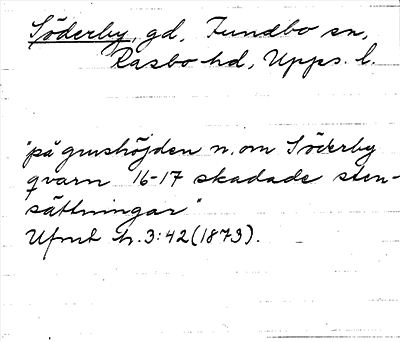 Söderby, gd, Funbo sn,
Rasbo hd, Upps. l.
"på grushöjden n. om Söderby
qvarn 16-17 skadade sten-
sättningar"
Ufmt h. 3:42 (1873).